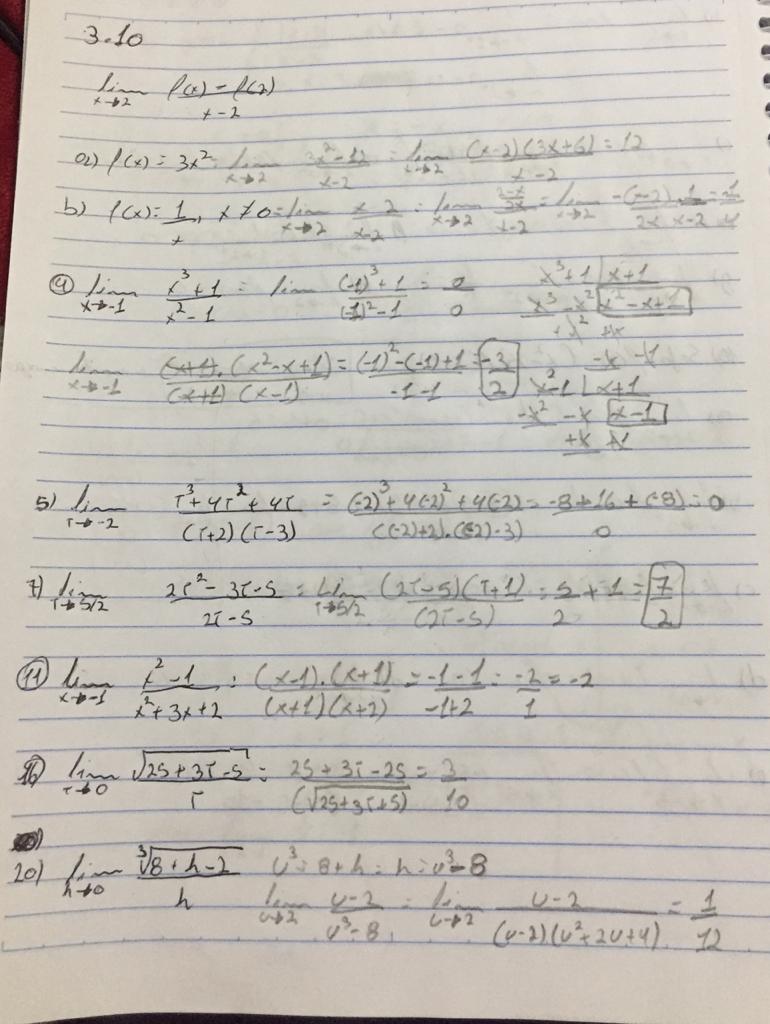 3.10
lim x→2 f(x) - f(2) / x - 2
a) f(x) = 3x² = lim x→2 3x² - 12 / x - 2 = lim x→2 (x-2)(3x+6) / x - 2 = 12
b) f(x) = 1/x, x ≠ 0 = lim x→2 x 2 / x-2 = lim x→2 2-x / 2x / x-2 = lim x→2 -(x-2) / 2x 1 / x-2 = -1 / 4
4) lim x→-1 x³+1 / x²-1 = lim (-1)³+1 / (-1)²-1 = 0 / 0
x³+1 | x+1
x³ - x² | x² - x+1
-x² +x
-x -1
lim x→-1 (x+1).(x²-x+1) / (x+1)(x-1) = (-1)²-(-1)+1 / -1-1 = -3 / 2
x²-1 | x+1
-x² - x | x-1
+x +1
5) lim T→-2 T³+4T²+4T / (T+2)(T-3) = (-2)³+4(-2)²+4(-2) / ((-2)+2).((-2)-3) = -8+16+(-8) / 0 = 0
7) lim T→5/2 2T²-3T-5 / 2T-5 = Lim T→5/2 (2T-5)(T+1) / (2T-5) = 5 / 2 + 1 = 7 / 2
11) lim x→-1 x²-1 / x²+3x+2 = (x-1).(x+1) / (x+1)(x+2) = -1-1 / -1+2 = -2 / 1 = -2
16) lim T→0 √25+3T-5 / T = 25+3T-25 / (√25+3T+5) = 3 / 10
20) lim h→0 ³√8+h-2 / h u³=8+h = h=u³-8
lim u→2 u-2 / u³-8 = lim u→2 u-2 / (u-2)(u²+2u+4) = 1 / 12